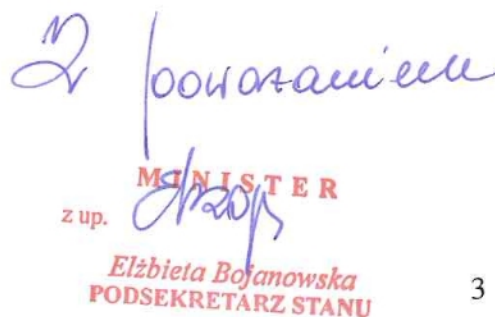 Z poważaniem
MINISTER
z up.
Elżbieta Bojanowska
PODSEKRETARZ STANU
3